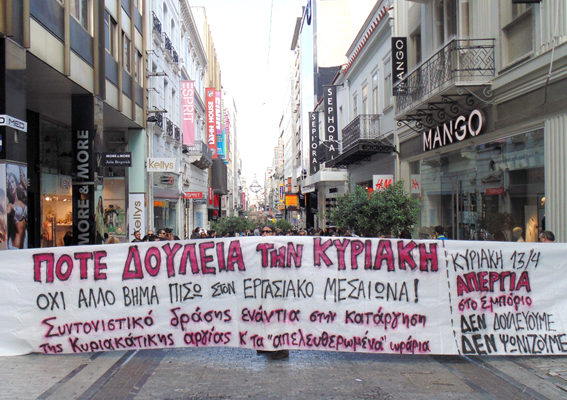 ΠΟΤΕ ΔΟΥΛΕΙΑ ΤΗΝ ΚΥΡΙΑΚΗ
ΟΧΙ ΑΛΛΟ ΒΗΜΑ ΠΙΣΩ ΣΤΟΝ ΕΡΓΑΣΙΑΚΟ ΜΕΣΑΙΩΝΑ!
Συντονιστικό δράσης ενάντια στην κατάργηση
της Κυριακάτικης αργίας κ τα "απελευθερωμένα" ωράρια
ΚΥΡΙΑΚΗ 13/4
ΑΠΕΡΓΙΑ
στο Εμπόριο
ΔΕΝ ΔΟΥΛΕΥΟΥΜΕ
ΔΕΝ ΨΩΝΙΖΟΥΜΕ
MANGO
MANGO
SEPHORA
SEPHORA
H&M
ESPRIT
kellys
kellys
MORE & MORE
MORE & MORE